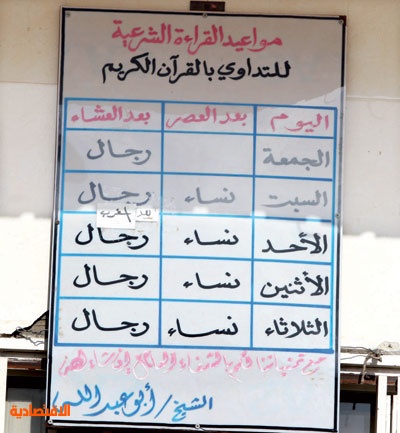 مواعيد القراءة الشرعية
للتداوي بالقرآن الكريم
اليوم بعد العصر بعد العشاء
الجمعة رجال
السبت نساء رجال
بعد المغرب
الأحد نساء رجال
الأثنين نساء رجال
الثلاثاء نساء رجال
مع تمنياتنا لكم بالشفاء العاجل إن شاء الله
الشيخ / أبو عبد الله
الاقتصادية